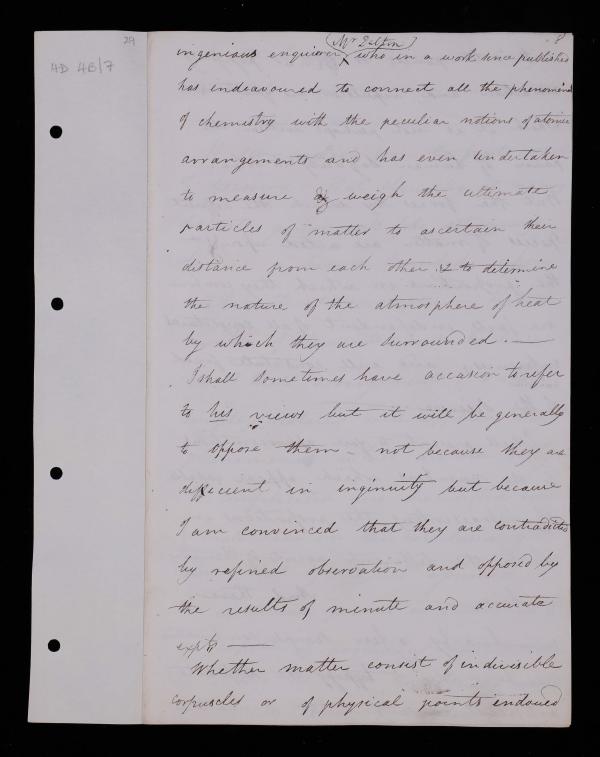 29
8
4D 4B/7
(Mr Dalton)
ingenious enquirer who in a work since published
has endeavoured to connect all the phenomena
of chemistry with the peculiar notions of atomic
arrangements and has even undertaken
to measure & weigh the ultimate
particles of matter to ascertain their
distance from each other & to determine
the nature of the atmosphere of heat
by which they are surrounded. —
I shall sometimes have occasion to refer
to his views but it will be generally
to oppose them - not because they are
difficient in inginuity but because
I am convinced that they are contradicted
by refined observation and opposed by
the results of minute and accurate
expts —
Whether matter consist of indivisible
corpuscles or of physical points endowed